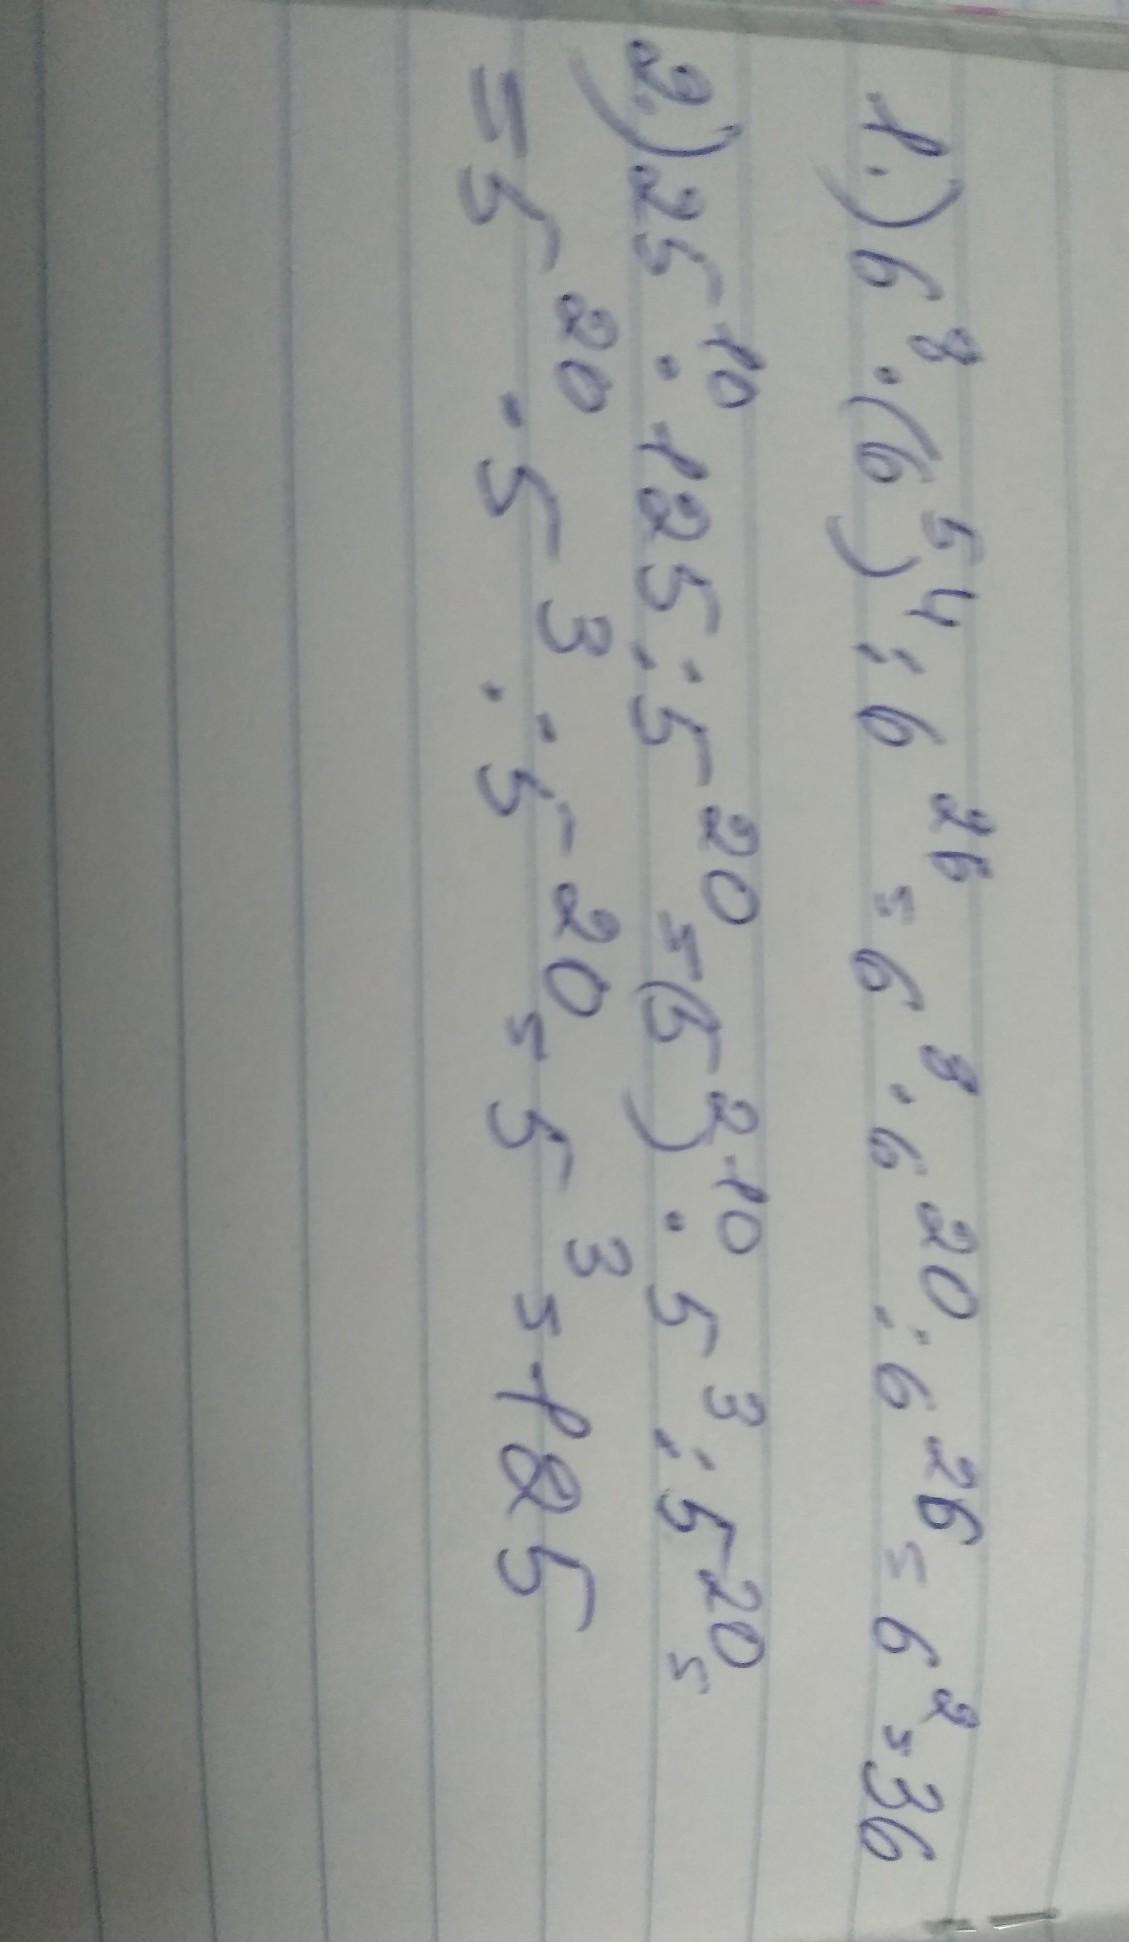 1.) 6⁸ · (6⁵)⁴ : 6²⁶ = 6⁸ · 6²⁰ : 6²⁶ = 6² = 36
2.) 25¹⁰ · 125 : 5²⁰ = (5²)¹⁰ · 5³ : 5²⁰ =
= 5²⁰ · 5³ : 5²⁰ = 5³ = 125